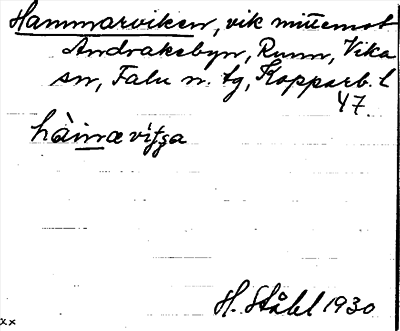 Hammarviken, vik mittemot
Andraksbyn, Runn, Vika
sn, Falu n. tg, Kopparb. l
47.
hàmæ vitga
H. Ståhl 1930
xx